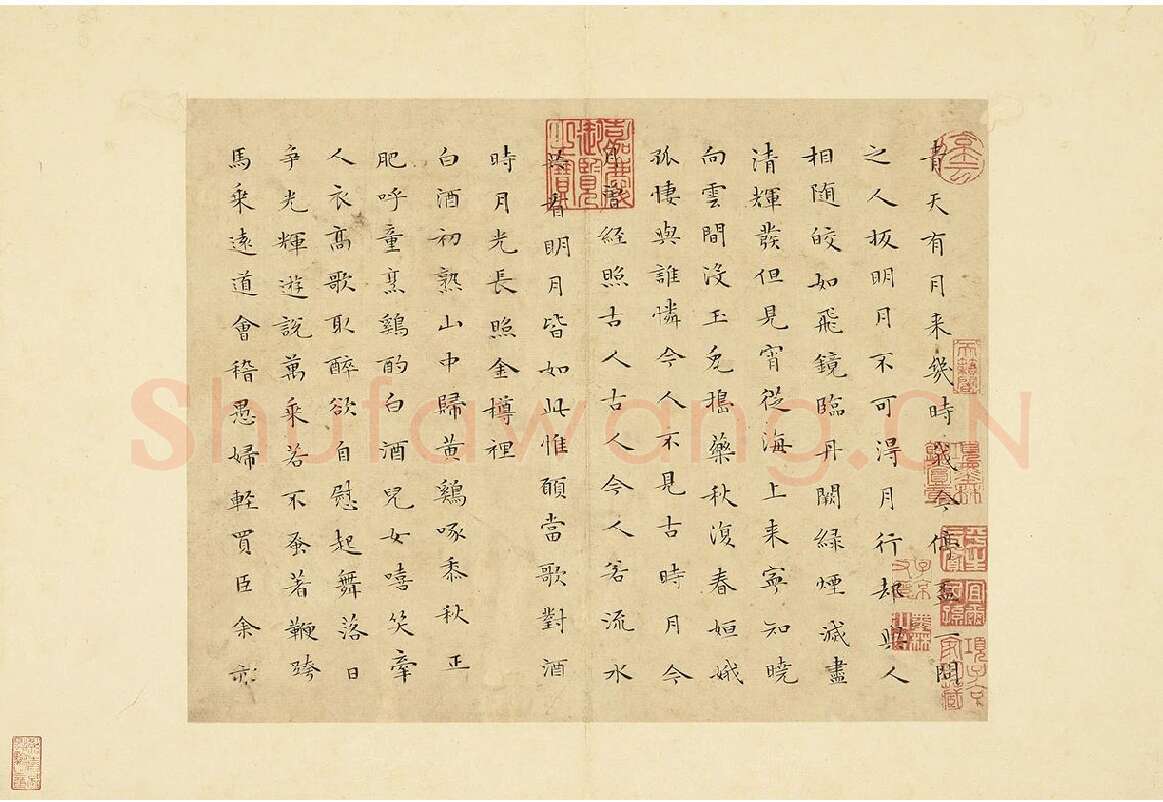 青天有月来幾時我今停盃一問
之人扳明月不可淂月行却與人
相随皎如飛鏡臨丹闕緑煙滅盡
清輝發但見宵従海上来寧知曉
向雲間没玉兎搗藥秋復春姮娥
孤悽與誰憐今人不見古時月今
月曾經照古人古人今人若流水
共看明月皆如此惟願當歌對酒
時月光長照金樽裡
白酒初熟山中歸黄鷄啄黍秋正
肥呼童烹鷄酌白酒兒女嘻笑牽
人衣高歌取醉欲自慰起舞落日
争光輝遊説萬乘苦不蚤著鞭跨
馬乘遠道會稽愚婦輕買臣余亦
嘉慶御覽之寶
天籟閣
Shufawang.CN